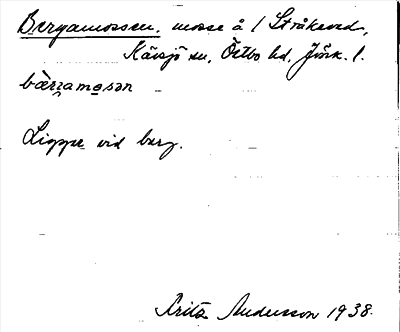 Bergamossen, mosse å 1 Stråkeved,
Kävsjö sn, Östbo hd, Jönk. l.
bær̯amosən
Ligger vid berg.
Fritz Andersson 1938.